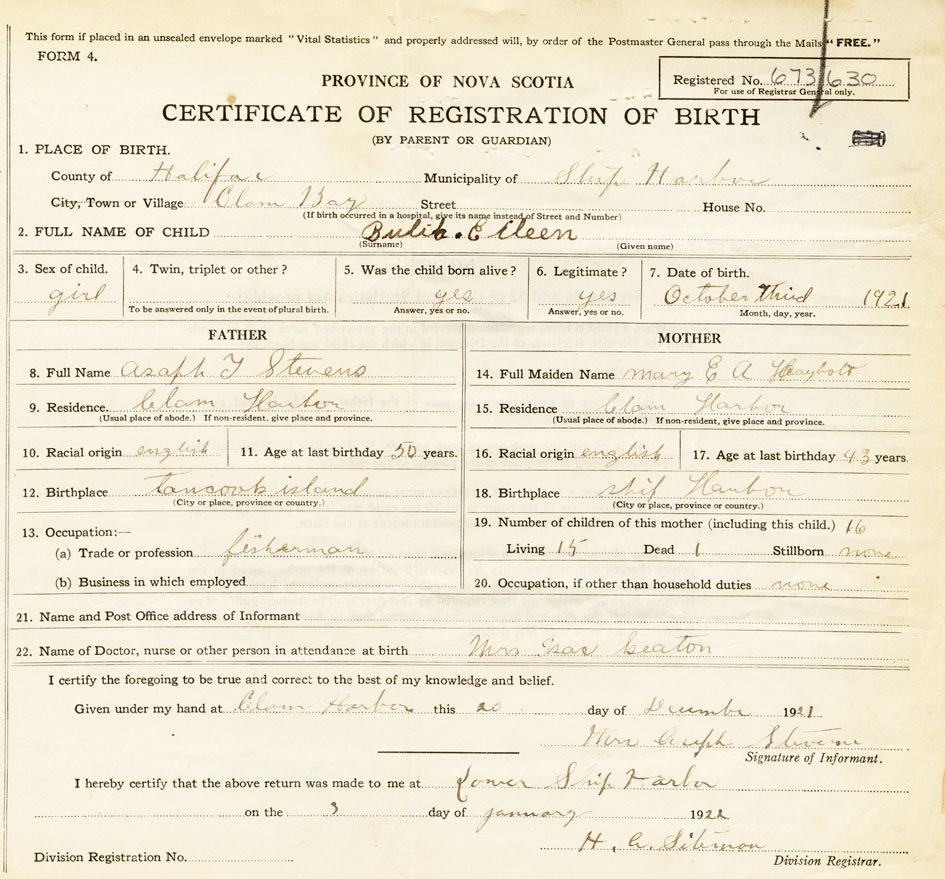 This form if placed in an unsealed envelope marked "Vital Statistics" and properly addressed will, by order of the Postmaster General pass through the Mails "FREE."
FORM 4.
PROVINCE OF NOVA SCOTIA
Registered No. 673630
For use of Registrar General only.
CERTIFICATE OF REGISTRATION OF BIRTH
(BY PARENT OR GUARDIAN)
1. PLACE OF BIRTH.
County of Halifax Municipality of Ship Harbor
City, Town or Village Clam Bay Street House No.
(If birth occurred in a hospital, give its name instead of Street and Number)
2. FULL NAME OF CHILD Eileen
(Surname) (Given name)
3. Sex of child. 4. Twin, triplet or other? 5. Was the child born alive? 6. Legitimate? 7. Date of birth.
girl yes yes October third 1921
To be answered only in the event of plural birth. Answer, yes or no. Answer, yes or no. Month, day, year.
FATHER MOTHER
8. Full Name Asaph T Stevens 14. Full Maiden Name Mary E A
9. Residence. Clam Harbor 15. Residence Clam Harbor
(Usual place of abode.) If non-resident, give place and province. (Usual place of abode.) If non-resident, give place and province.
10. Racial origin english 11. Age at last birthday 50 years. 16. Racial origin english 17. Age at last birthday 43 years.
12. Birthplace tancook island 18. Birthplace ship Harbor
(City or place, province or country.) (City or place, province or country.)
13. Occupation:— 19. Number of children of this mother (including this child.) 16
(a) Trade or profession fisherman Living 15 Dead 1 Stillborn none
(b) Business in which employed 20. Occupation, if other than household duties none
21. Name and Post Office address of Informant
22. Name of Doctor, nurse or other person in attendance at birth Mrs
I certify the foregoing to be true and correct to the best of my knowledge and belief.
Given under my hand at Clam Harbor this 20 day of December 1921
Mrs Asaph Stevens
Signature of Informant.
I hereby certify that the above return was made to me at Lower Ship Harbor
on the 3 day of january 1922
H.
Division Registration No. Division Registrar.